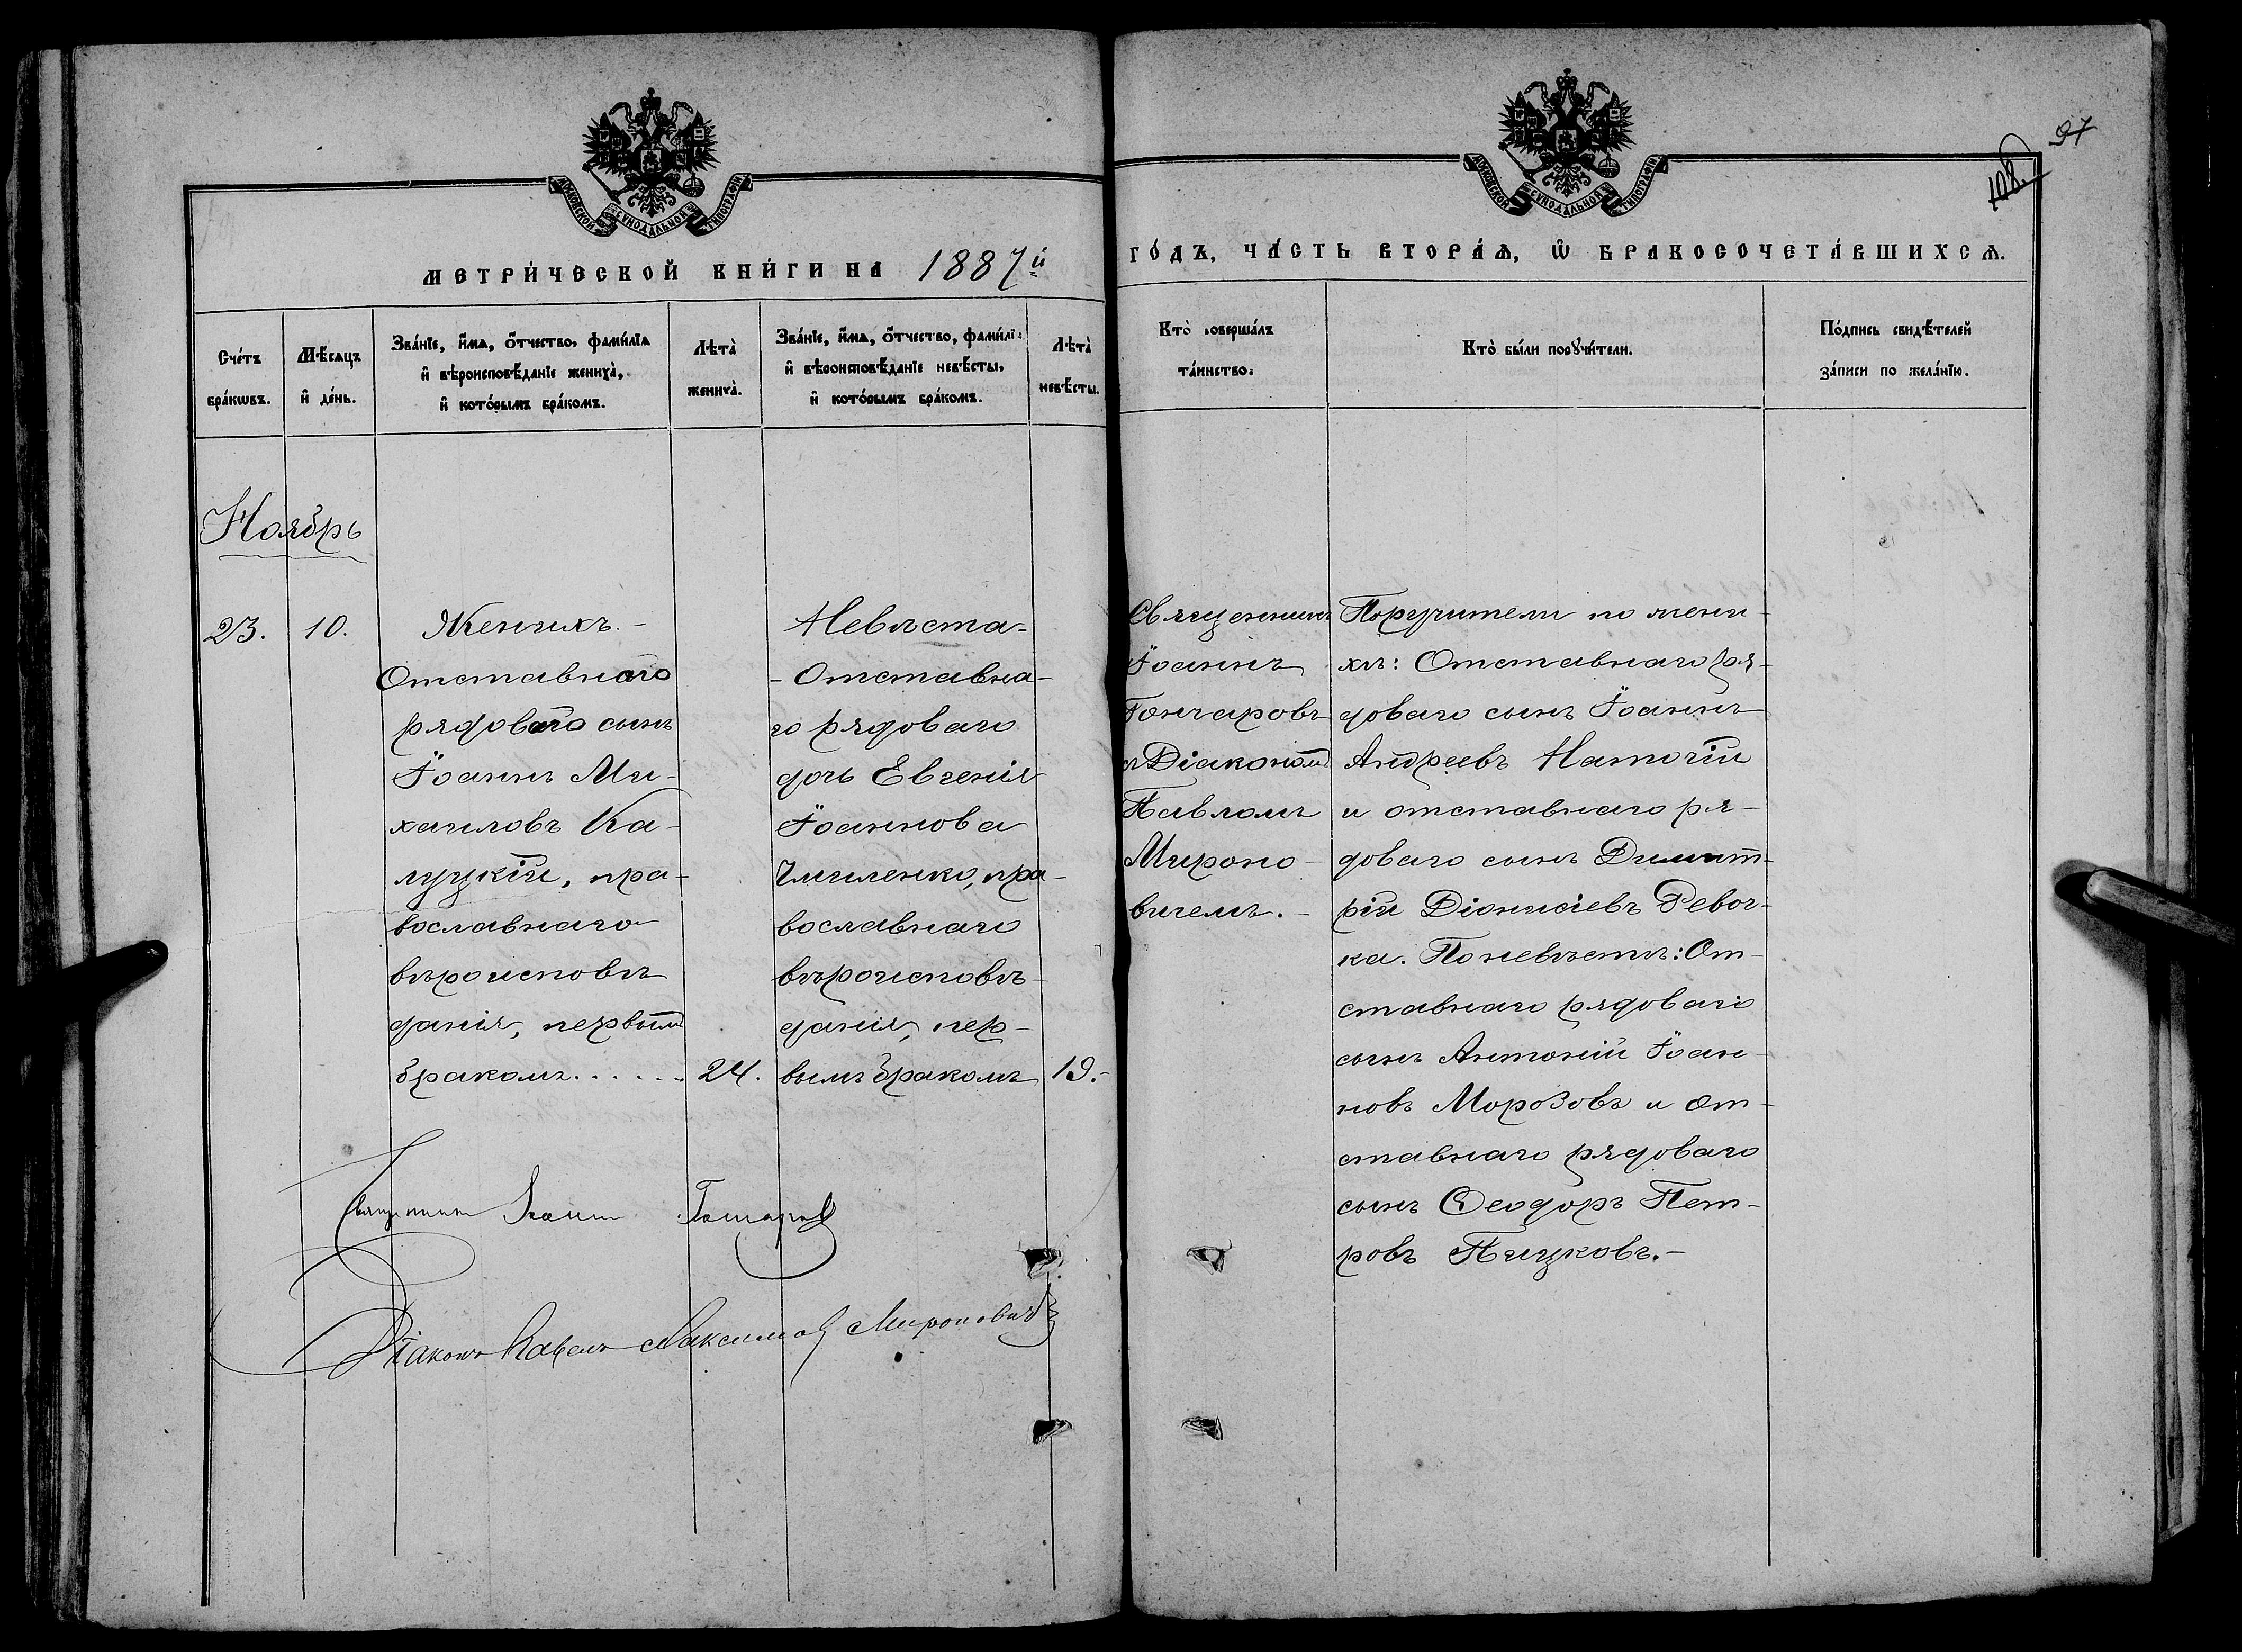 97
108.
МОСКОВСКОЙ СѴНОДАЛЬНОЙ ТИПОГРАФІИ
МОСКОВСКОЙ СѴНОДАЛЬНОЙ ТИПОГРАФІИ
МЕТРИ́ЧЕСКОЙ КНИ́ГИ НА 1887й
ГО́ДЪ, ЧА́СТЬ ВТОРА́Ѧ, Ѽ БРАКОСОЧЕТА́ВШИХСѦ.
Сче́тъ бра́кѡвъ.
Мѣ́сяцъ и҆ де́нь.
Зва́нїе, и҆́мѧ, ѻ҆́тчество, фами́лїа
и҆ вѣроисповѣ́данїе жениха̀,
и҆ кото́рымъ бра́комъ.
Лѣта̀ жениха̀.
Зва́нїе, и҆́мѧ, ѻ҆́тчество, фами́лї:
и҆ вѣроисповѣ́данїе невѣ́сты,
и҆ кото́рымъ бра́комъ.
Лѣта̀ невѣ́сты.
Кто̀ соверша́лъ та́инство.
Кто̀ бы́ли порꙋчи́тели.
По́дпись свидѣ́телей
за́писи по жела́нїю.
Ноябрь
23. 10.
Женихъ. –
Отставнаго
рядоваго сынъ
Іоаннъ Ми-
хаиловъ Ка-
луцкій, пра-
вославнаго
вѣроисповѣ
данія, первымъ
бракомъ. . . . . . 24.
Невѣста-
- Отставна-
го рядоваго
дочь Евгенія
Іоаннова
Чмиленко, пра-
вославнаго
вѣроисповѣ-
данія, пер-
вымъ бракомъ 19.-
Священникъ
Іоаннъ
Гончаровъ
съ Діакономъ
Павломъ
Мироно-
вичемъ. -
Поручители по жени-
хѣ: Отставнаго ря-
доваго сынъ Іоаннъ
Андреевъ Наточій
и отставнаго ря-
доваго сынъ Димит-
рій Діонисіевъ Ревоч-
ка. По невѣстѣ: От-
ставнаго рядоваго
сынъ Антоній Іоан
новъ Морозовъ и от-
ставнаго рядоваго
сынъ Ѳеодоръ Пет-
ровъ Пицковъ.-
Священникъ Іоаннъ Гончаровъ
Діаконъ Павелъ Максимовъ Мироновичъ